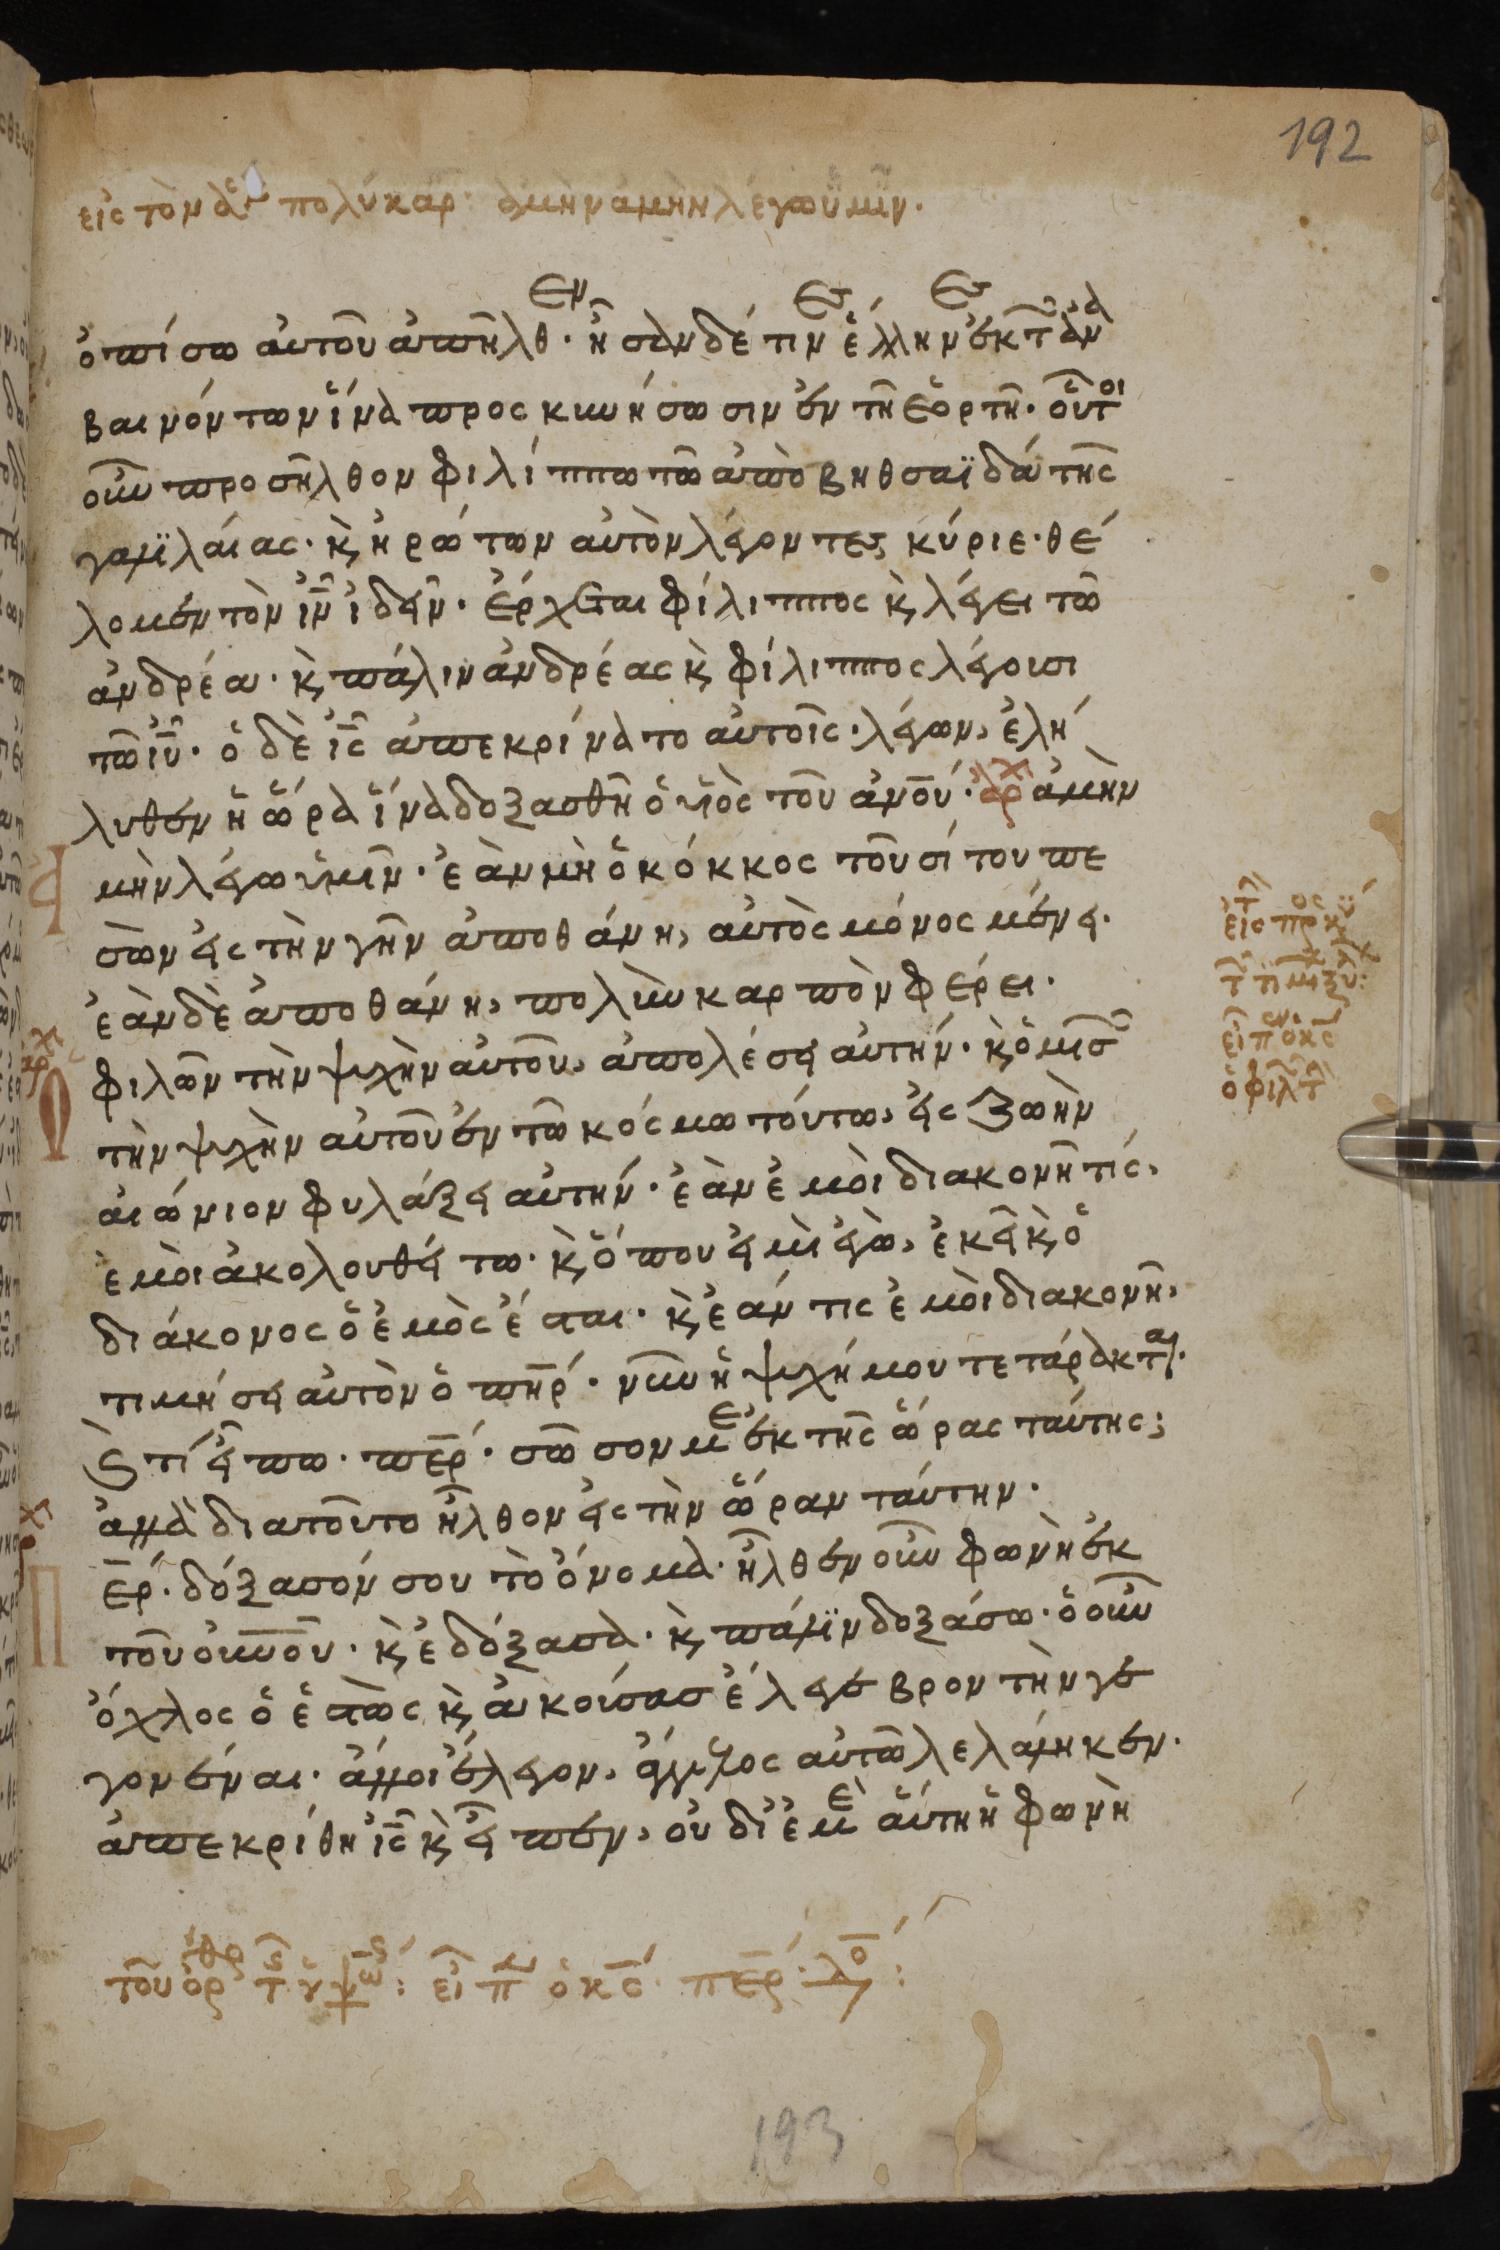 192
εἰς τὸν ἅγ πολύκαρ· ἀμὴν ἀμὴν λέγω ὑμῖν.
ὀπίσω αὐτοῦ ἀπῆλθεν· ἦσαν δέ τινες ἕλληνες ἐκ τῶν ἀνα
βαινόντων ἵνα προσκυνήσωσιν ἐν τῆ ἑορτῆ· οὗτοι
οὖν προσῆλθον φιλίππω τῶ ἀπὸ βηθσαϊδά τῆς
γαλιλαίας· κ ἠρώτων αὐτὸν λέγοντες κύριε· θέ
λομεν τὸν ιν ἰδεῖν· ἔρχεται φίλιππος κ λέγει τῶ
ἀνδρέα· κ πάλιν ἀνδρέας κ φίλιππος λέγουσι
τῶ ιυ· ὁ δὲ ις ἀπεκρίνατο αὐτοῖς· λέγων, ἐλή
λυθεν ἡ ὥρα ἵνα δοξασθῆ ὁ υἱὸς τοῦ ανου· αρχ ἀμὴν
ἀμὴν λέγω ὑμῖν· ἐὰν μὴ ὁ κόκκος τοῦ σίτου πε
σὼν εἰς τὴν γῆν ἀποθάνη, αὐτὸς μόνος μένει·
ἐὰν δὲ ἀποθάνη, πολὺν καρπὸν φέρει·
ὁ φιλῶν τὴν ψυχὴν αὐτοῦ, ἀπολέσει αὐτήν· κ ὁ μισῶν
τὴν ψυχὴν αὐτοῦ ἐν τῶ κόσμω τούτω, εἰς ζωὴν
αἰώνιον φυλάξει αὐτήν· ἐὰν ἐμοὶ διακονῆ τίς,
ἐμοὶ ἀκολουθείτω· κ ὅπου εἰμὶ ἐγὼ, ἐκεῖ κ ὁ
διάκονος ὁ ἐμὸς ἔσται· κ ἐάν τις ἐμοὶ διακονῆ,
τιμήσει αὐτὸν ὁ πηρ· νῦν ἡ ψυχή μου τετάρακται·
κ τί εἴπω· περ· σῶσον με ἐκ τῆς ὥρας ταύτης;
ἀλλὰ διατοῦτο ἦλθον εἰς τὴν ὥραν ταύτην·
περ· δόξασόν σου τὸ ὄνομα· ἦλθεν οὖν φωνὴ ἐκ
τοῦ οὐνοῦ· κ ἐδόξασα· κ πάλιν δοξάσω· ὁ οὖν
ὄχλος ὁ ἑστὼς κ ἀκούσας ἔλεγε βροντὴν γε
γονέναι· ἄλλοι ἔλεγον, ἄγγελος αὐτῶ λελάληκεν·
ἀπεκρίθη ις κ εἶπεν, οὐ δι ἐμὲ αὕτη ἡ φωνὴ
εἰπ ὁ κς
ὁ φιλ
τοῦ ὄρθρ τ ὑψω: εἶπ ὁ κς· περ·
193